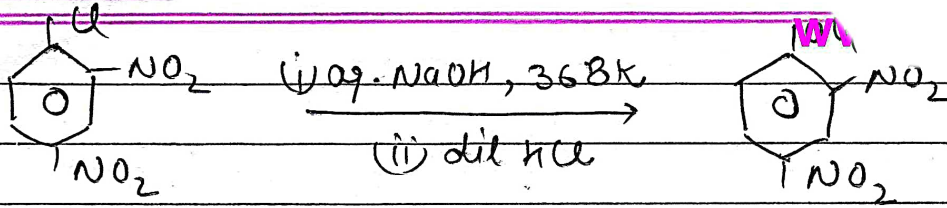 Cl
NO₂ (i) aq. NaOH, 368K NO₂
(ii) dil HCl
NO₂ NO₂